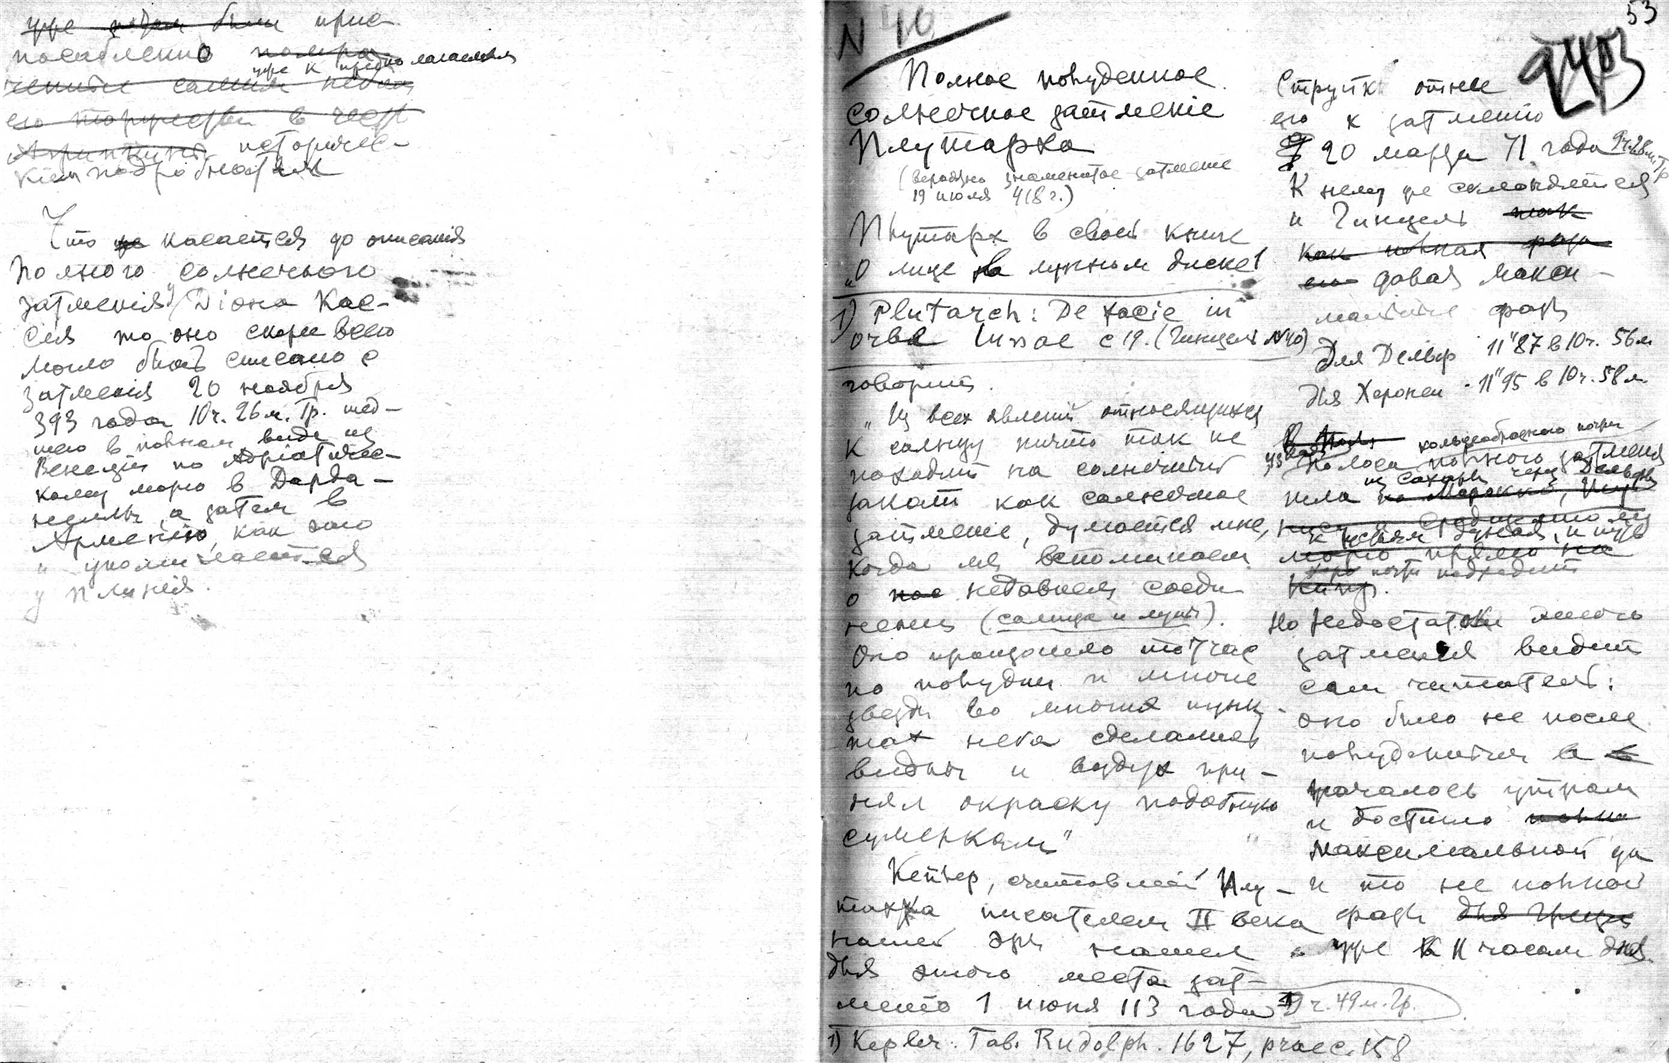 уже потом были прис-
пособленно помра-
уже к предполагаемым
ченные самим небом
его торжества в честь
Агриппины историчес-
ким подробностям
Что же касается до описания
полного солнечного
затмения у Диона Кас-
сия то оно скорее всего
могло быть списано с
затмения 20 ноября
393 года 10ч. 26м. Гр. шед-
шего в полном виде из
Венеции по Адриатичес-
кому морю в Дарда-
неллы, а затем в
Армению, как это
и упоминается
у Плиния.
N 40
Полное полуденное
солнечное затмение
Плутарха
(вероятно знаменитое затмение
19 июля 418 г.)
Плутарх в своей книге
„О лице на лунном диске" 1
1) Plutarch: De facie in
orbe Lunae c 19. (Гинцель N40)
говорит.
„Из всех явлений относящихся
к солнцу ничто так не
походит на солнечный
закат как солнечное
затмение, думается мне,
когда мы вспоминаем
о недавнем соеди-
нении (солнца и луны).
Оно произошло тотчас
по полудни и многие
звезды во многих пунк-
тах неба сделались
видны и воздух при-
нял окраску подобную
сумеркам"
Кеплер, считавший Плу-
тарха писателем II века
нашей эры нашел
для этого места зат-
мение 1 июня 113 года ч. 49м. Гр.
1) Kepler. Tab. Rudolph. 1627, praec. 158
53
2403
Струйк отнес
его к затмению
20 марта 71 года 9ч.28м. Гр
К нему же склоняется
и Гинцель так
как полная фаза
его давая макси-
мальные фазы
Для Дельф 11"87 в 10ч. 56м
для Херонеи - 11"95 в 10ч. 58м.
кольцеобразного почти
Полоса полного затмения
из Сахары через Дельфы
шла по Марокко,
к устьям Дуная,
морю прямо на
почти подходит
Кипр.
Но недостатки этого
затмения видит
сам читатель:
оно было не после
полуденным а
началось утром
и достигло полно
максимальной да
и то не полной
фазы для Греции
уже к 11 часам дня.